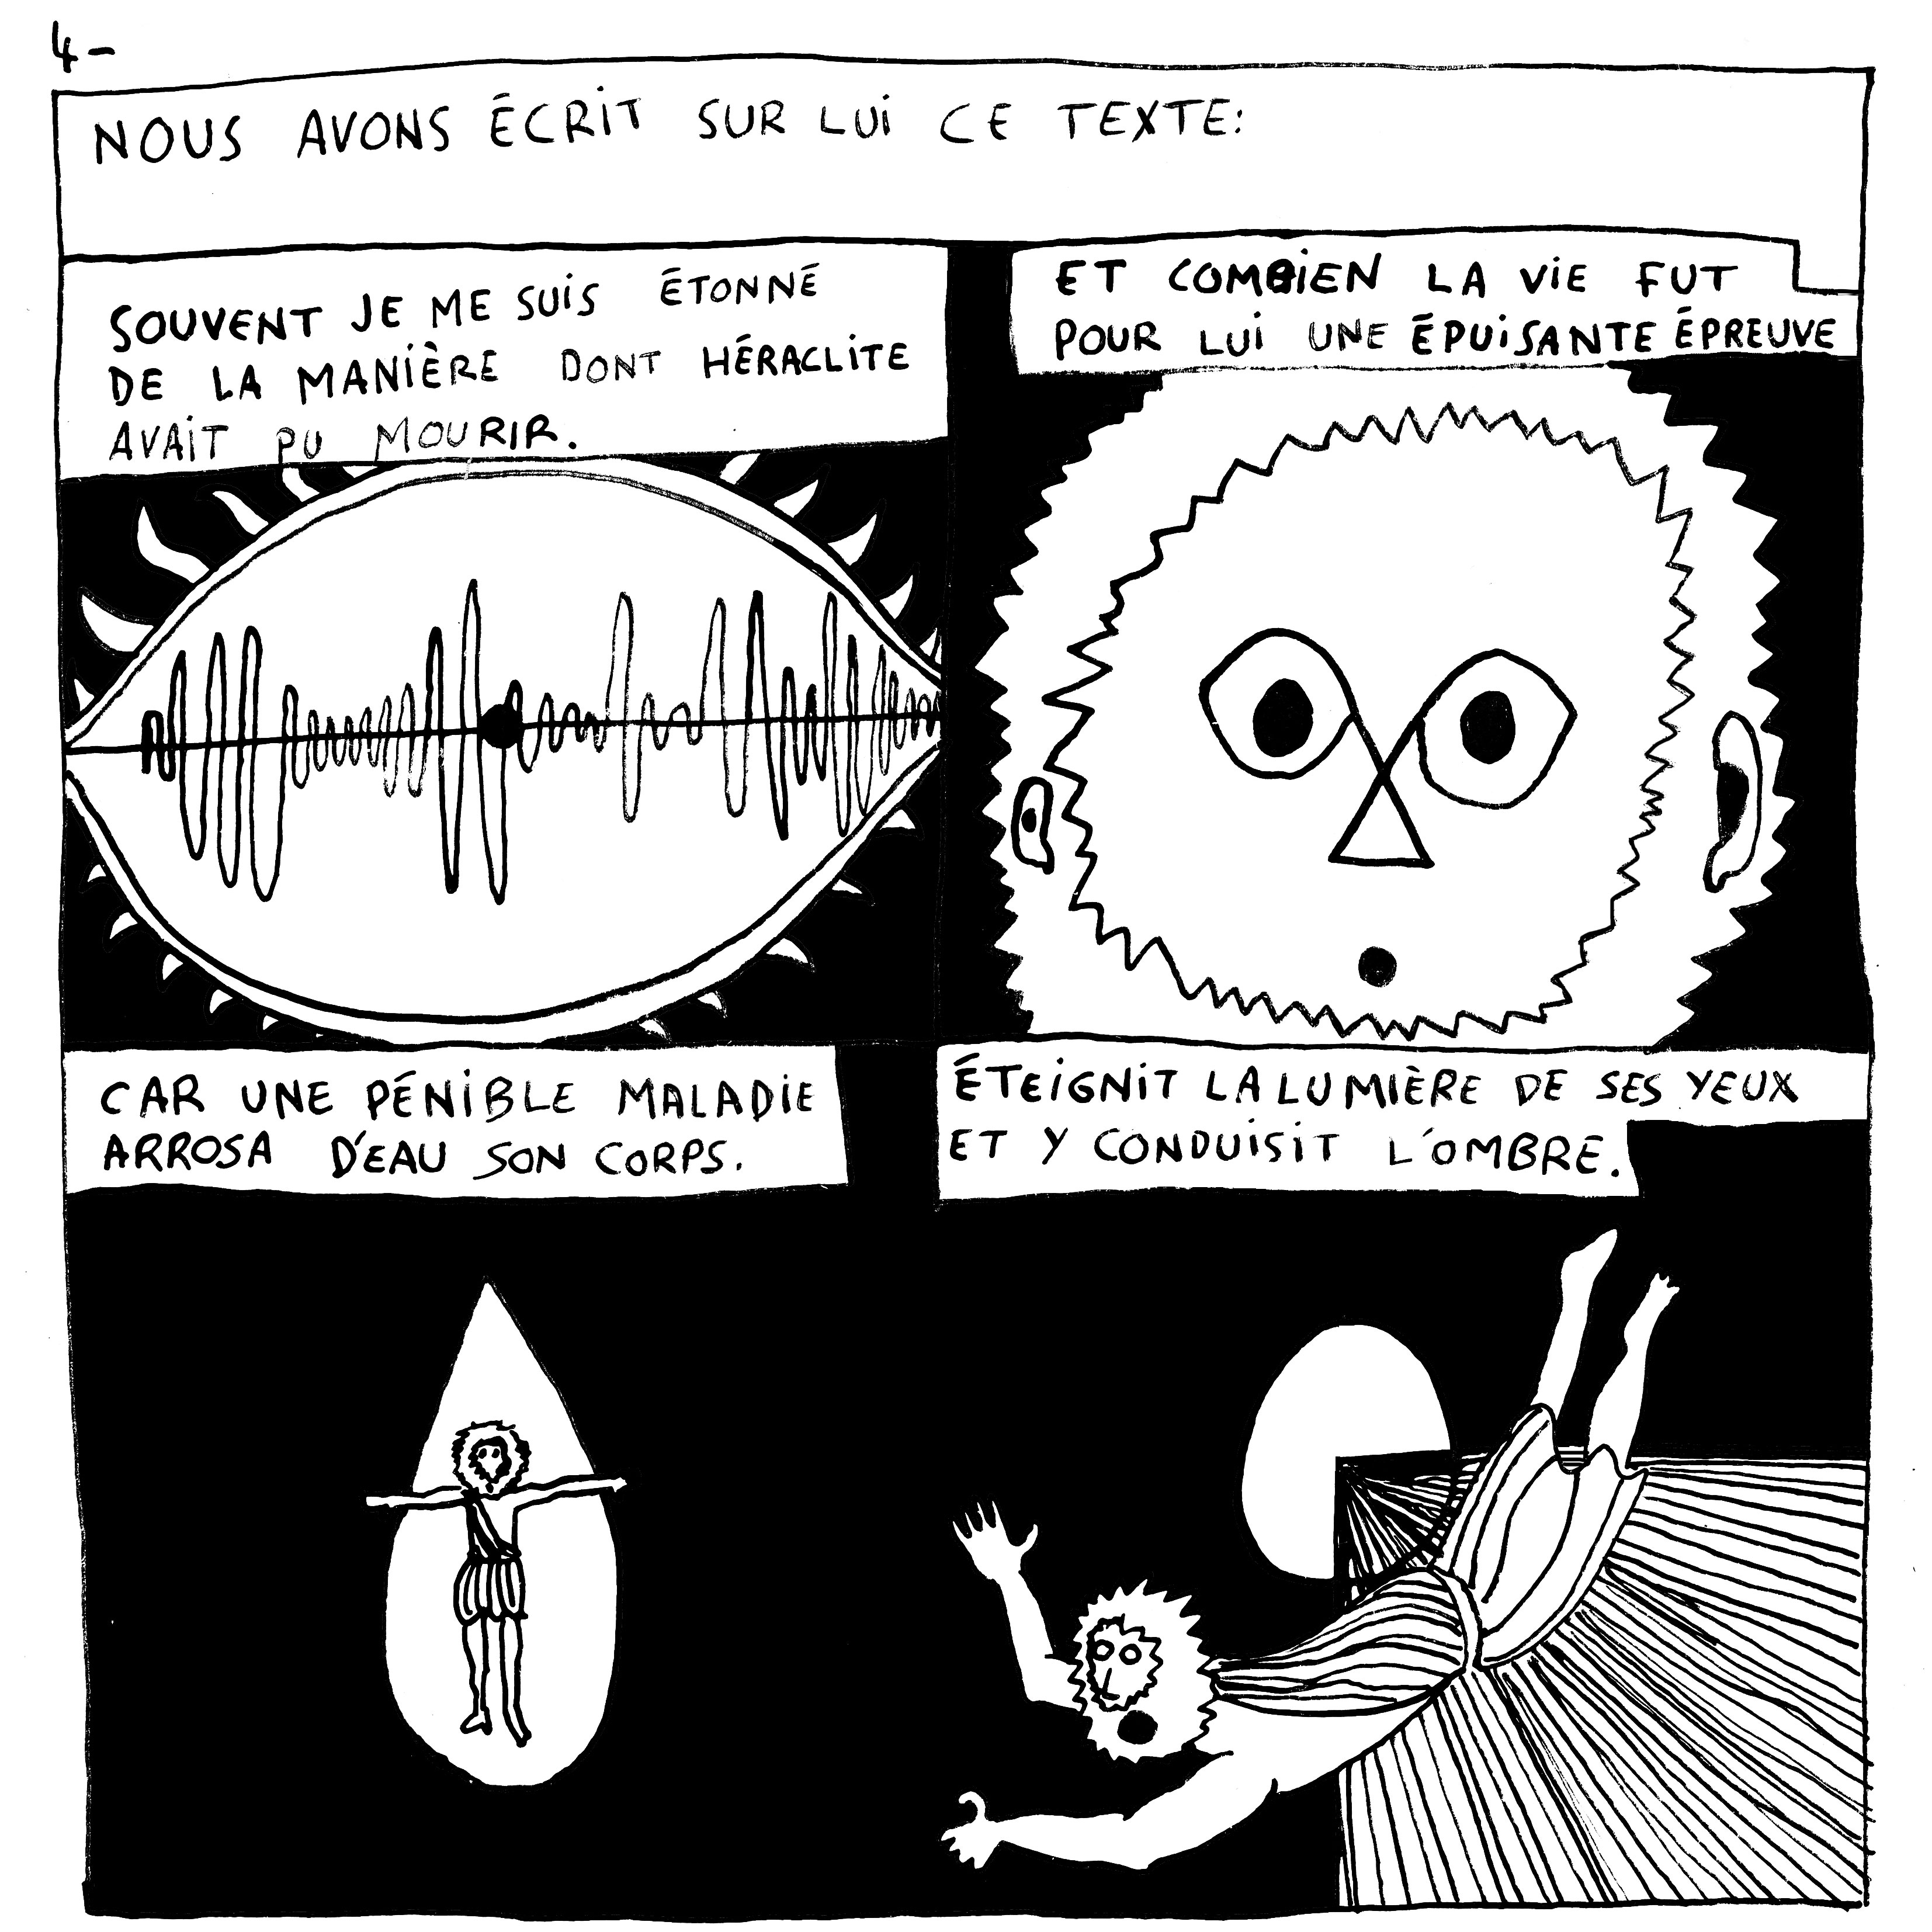 4-
NOUS AVONS ÉCRIT SUR LUI CE TEXTE:
SOUVENT JE ME SUIS ÉTONNÉ
DE LA MANIÈRE DONT HÉRACLITE
AVAIT PU MOURIR.
ET COMBIEN LA VIE FUT
POUR LUI UNE ÉPUISANTE ÉPREUVE
CAR UNE PÉNIBLE MALADIE
ARROSA D'EAU SON CORPS.
ÉTEIGNIT LA LUMIÈRE DE SES YEUX
ET Y CONDUISIT L'OMBRE.